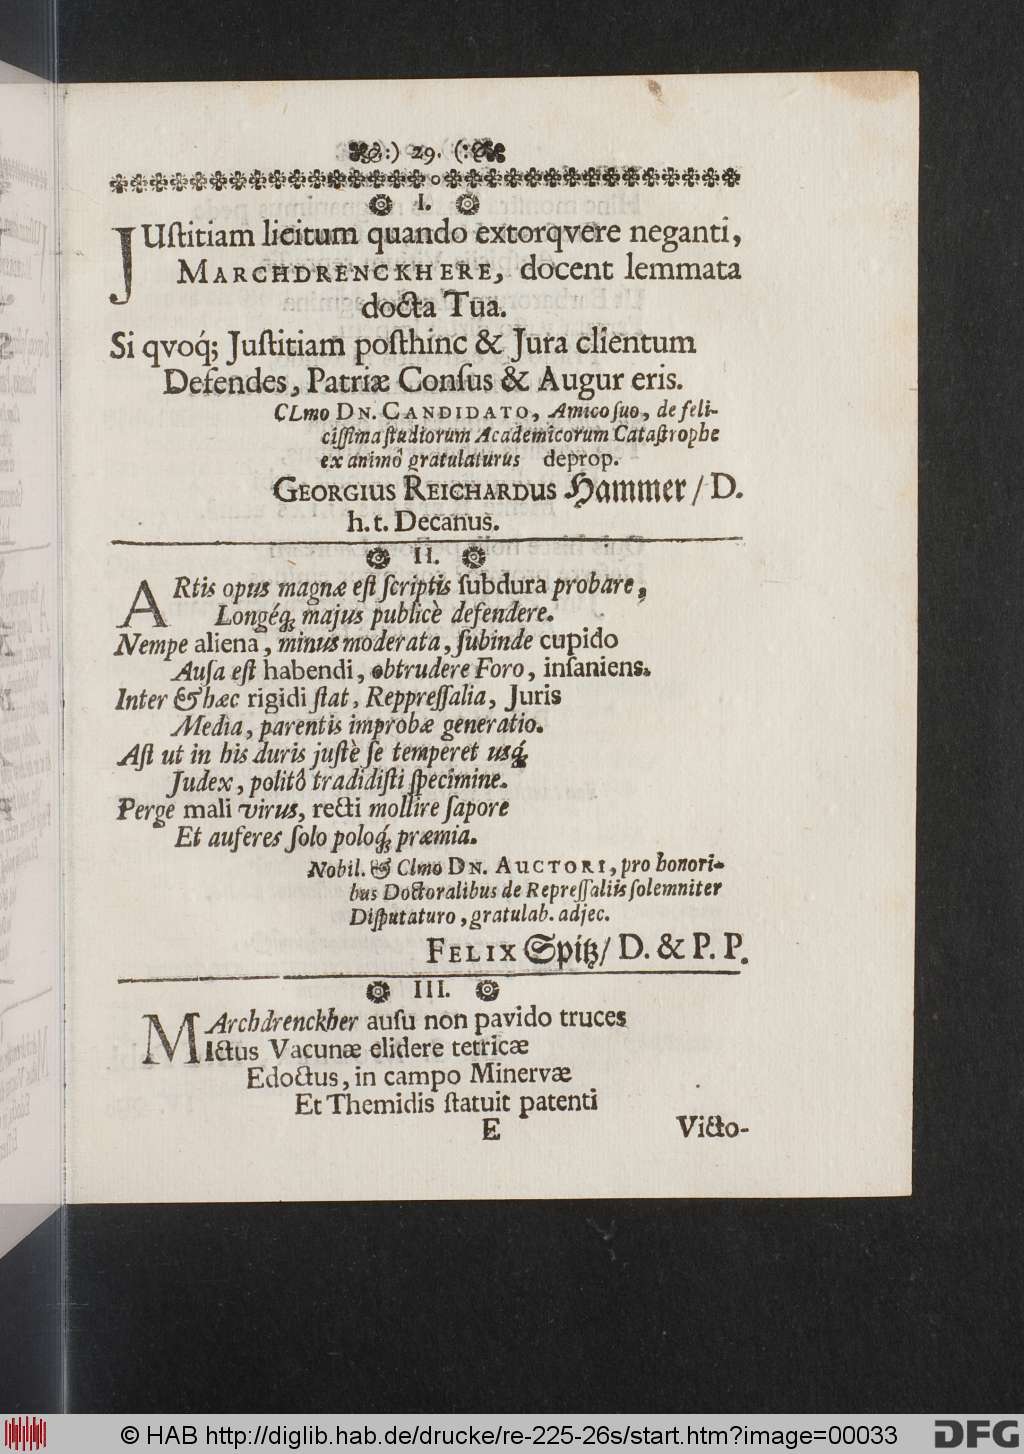 :) 29. (:
I.
JUſtitiam licitum quando extorqvere neganti,
MARCHDRENCKHERE, docent lemmata
docta Tua.
Si qvoq́; Juſtitiam poſthinc & Jura clientum
Defendes, Patriæ Conſus & Augur eris.
CLmo DN. CANDIDATO, Amico ſuo, de feli-
ciſſima ſtudiorum Academicorum Cataſtrophe
ex animô gratulaturus deprop.
GEORGIUS REICHARDUS Hammer / D.
h. t. Decanus.
II.
ARtis opus magnæ eſt ſcriptis ſubdura probare,
Longéq; majus publicè defendere.
Nempe aliena, minus moderata, ſubinde cupido
Auſa eſt habendi, obtrudere Foro, inſaniens.
Inter & hæc rigidi ſtat, Reppreſſalia, Juris
Media, parentis improbæ generatio.
Aſt ut in his duris juſtè ſe temperet usq́;
Judex, politô tradidiſti ſpecimine.
Perge mali virus, recti mollire ſapore
Et auferes ſolo poloq́; præmia.
Nobil. & Clmo DN. AUCTORI, pro honori-
bus Doctoralibus de Repreſſaliis ſolemniter
Diſputaturo, gratulab. adjec.
FELIX Spitz / D. & P. P.
III.
MArchdrenckher auſu non pavido truces
Ictus Vacunæ elidere tetricæ
Edoctus, in campo Minervæ
Et Themidis ſtatuit patenti
E Victo-
© HAB http://diglib.hab.de/drucke/re-225-26s/start.htm?image=00033
DFG